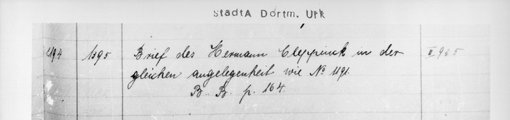 StadtA Dortm. Urk
1194 1395 Brief des Hermann Cleppinck in der II 965
gleichen angelegenheit wie No 1191
B. B. p. 164